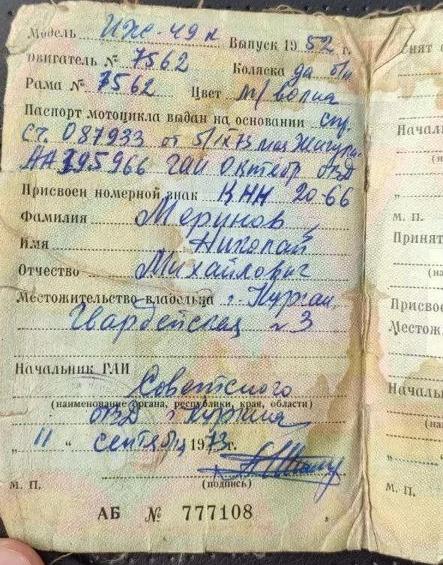 Модель ИЖ-49 к Выпуск 1952 г.
Двигатель № 7562
Коляска да б/н
Рама № 7562 Цвет м/волна
Паспорт мотоцикла выдан на основании спр.
сч. 087933 от 5/IX 73 маг.
АА 795966 ГАИ Октябр ОВД
Присвоен номерной знак КНН 20-66
Фамилия Меринов
Имя Николай
Отчество Михайлович
Местожительство владельца г. Курган,
Гвардейская 3
Начальник ГАИ
Советского
(наименование органа, республики, края, области)
ОВД г. Кургана
„ 11 “ сентября 1973 г.
(подпись)
М. П.
АБ № 777108
нят
Началь
(на
„
м. п.
Принят
(на
Присвое
Местож
Началь
(на
„
М. П.